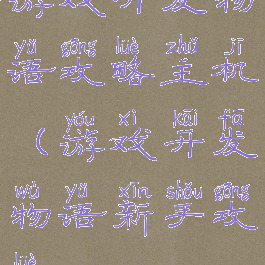 游戏开发物
yǔ gōng lüè zhǔ jī
语攻略主机
yóu xì kāi fā
（游戏开发
wù yǔ xīn shǒu gōng
物语新手攻
lüè